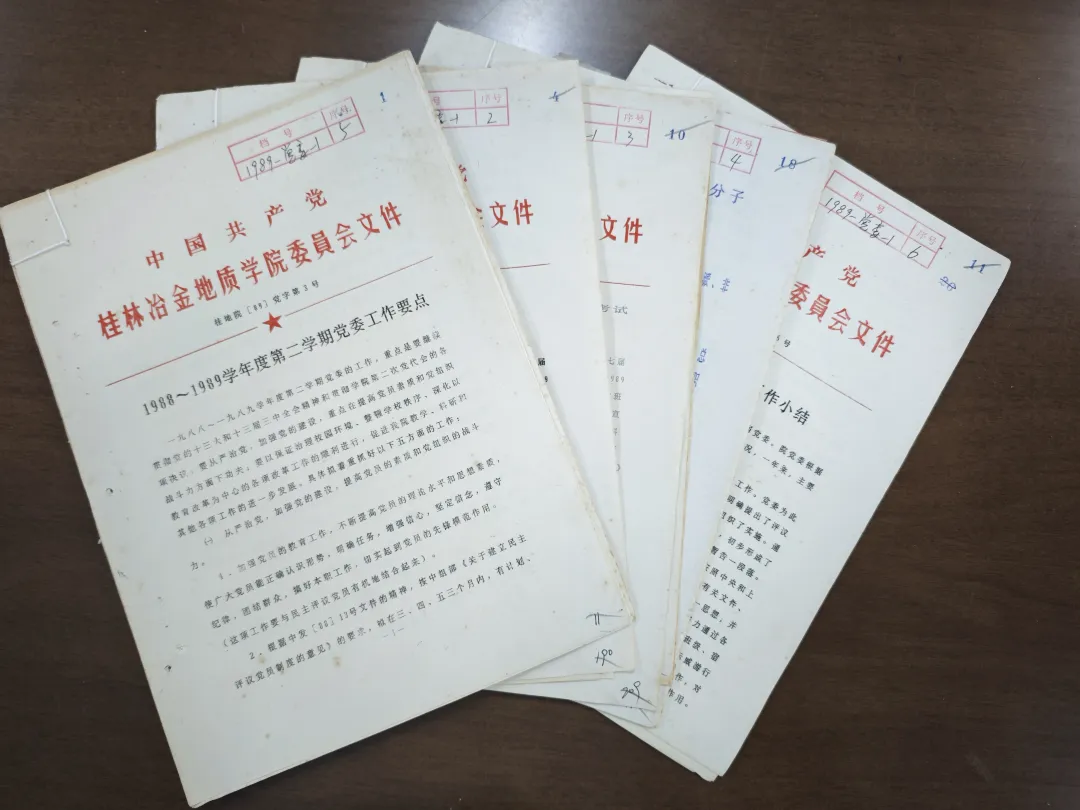 档号
序号
1989-党委-1
5
1
中国共产党
桂林冶金地质学院委員会文件
桂地院〔89〕党字第3号
1988～1989学年度第二学期党委工作要点
一九八八—一九八九学年度第二学期党委的工作，重点是要继续
贯彻党的十三大和十三届三中全会精神和贯彻学院第二次党代会的各
项决议，要从严治党，加强党的建设，重点在提高党员素质和党组织
战斗力方面下功夫；要以保证治理校园环境、整顿学校秩序、深化以
教育改革为中心的各项改革工作的顺利进行，促进我院教学、科研和
其他各项工作的进一步发展。具体拟着重抓好以下五方面的工作：
㈠ 从严治党，加强党的建设，提高党员的素质和党组织的战斗
力。
1、加强党员的教育工作，不断提高党员的理论水平和思想素质，
使广大党员能正确认识形势，明确任务，增强信心，坚定信念，遵守
纪律，团结群众，搞好本职工作，切实起到党员的先锋模范作用。
（这项工作要与民主评议党员有机地结合起来）。
2、根据中发〔88〕13号文件的精神，按中组部《关于建立民主
评议党员制度的意见》的要求，拟在三、四、五三个月内，有计划、
—1—
11
序号
-1
2
党
会文件
届
190
序号
-1
3
10
文件
考试
七届
989
班
序号
4
18
分子
档号
序号
1989-党委-1
6
产党
委員会文件
号
作小结
党委、院党委根据
况，一年来，主要
工作，党委为此
明确提出了评议
织了实施。通
，初步形成了
暂告一段落。
央和上
有关文件，
思想，并
力通过各
班级、宿
威游行
作，对
作用。